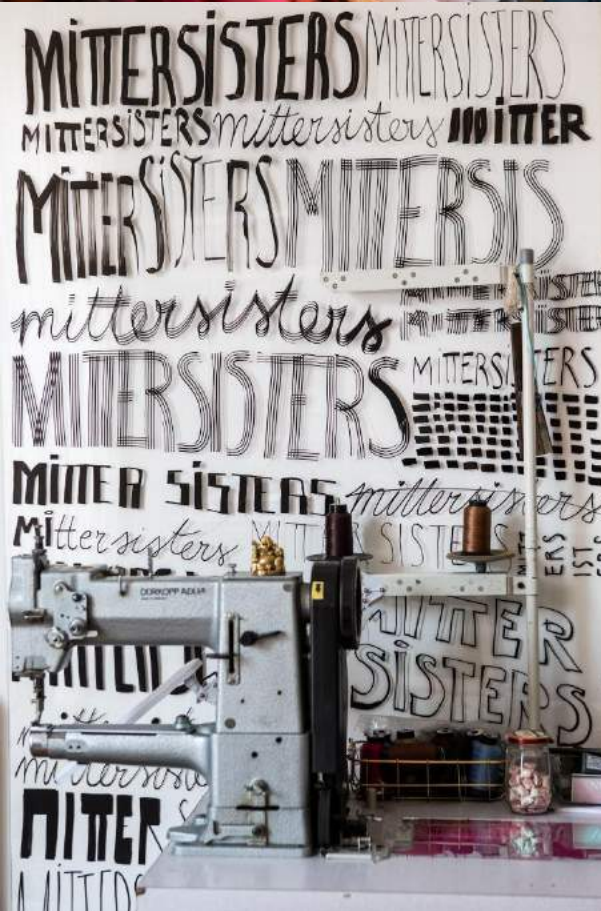 MITTERSISTERS MITTERSISTERS
MITTERSISTERS mittersisters MITTER
MITTERSISTERS MITTERSIS
mittersisters
MITTERSISTERS MITTERSISTERS
MITTER SISTERS mittersisters
Mittersisters MITTER SISTERS
DÜRKOPP ADLER
MITTER
SISTERS
mittersiste
MITTER